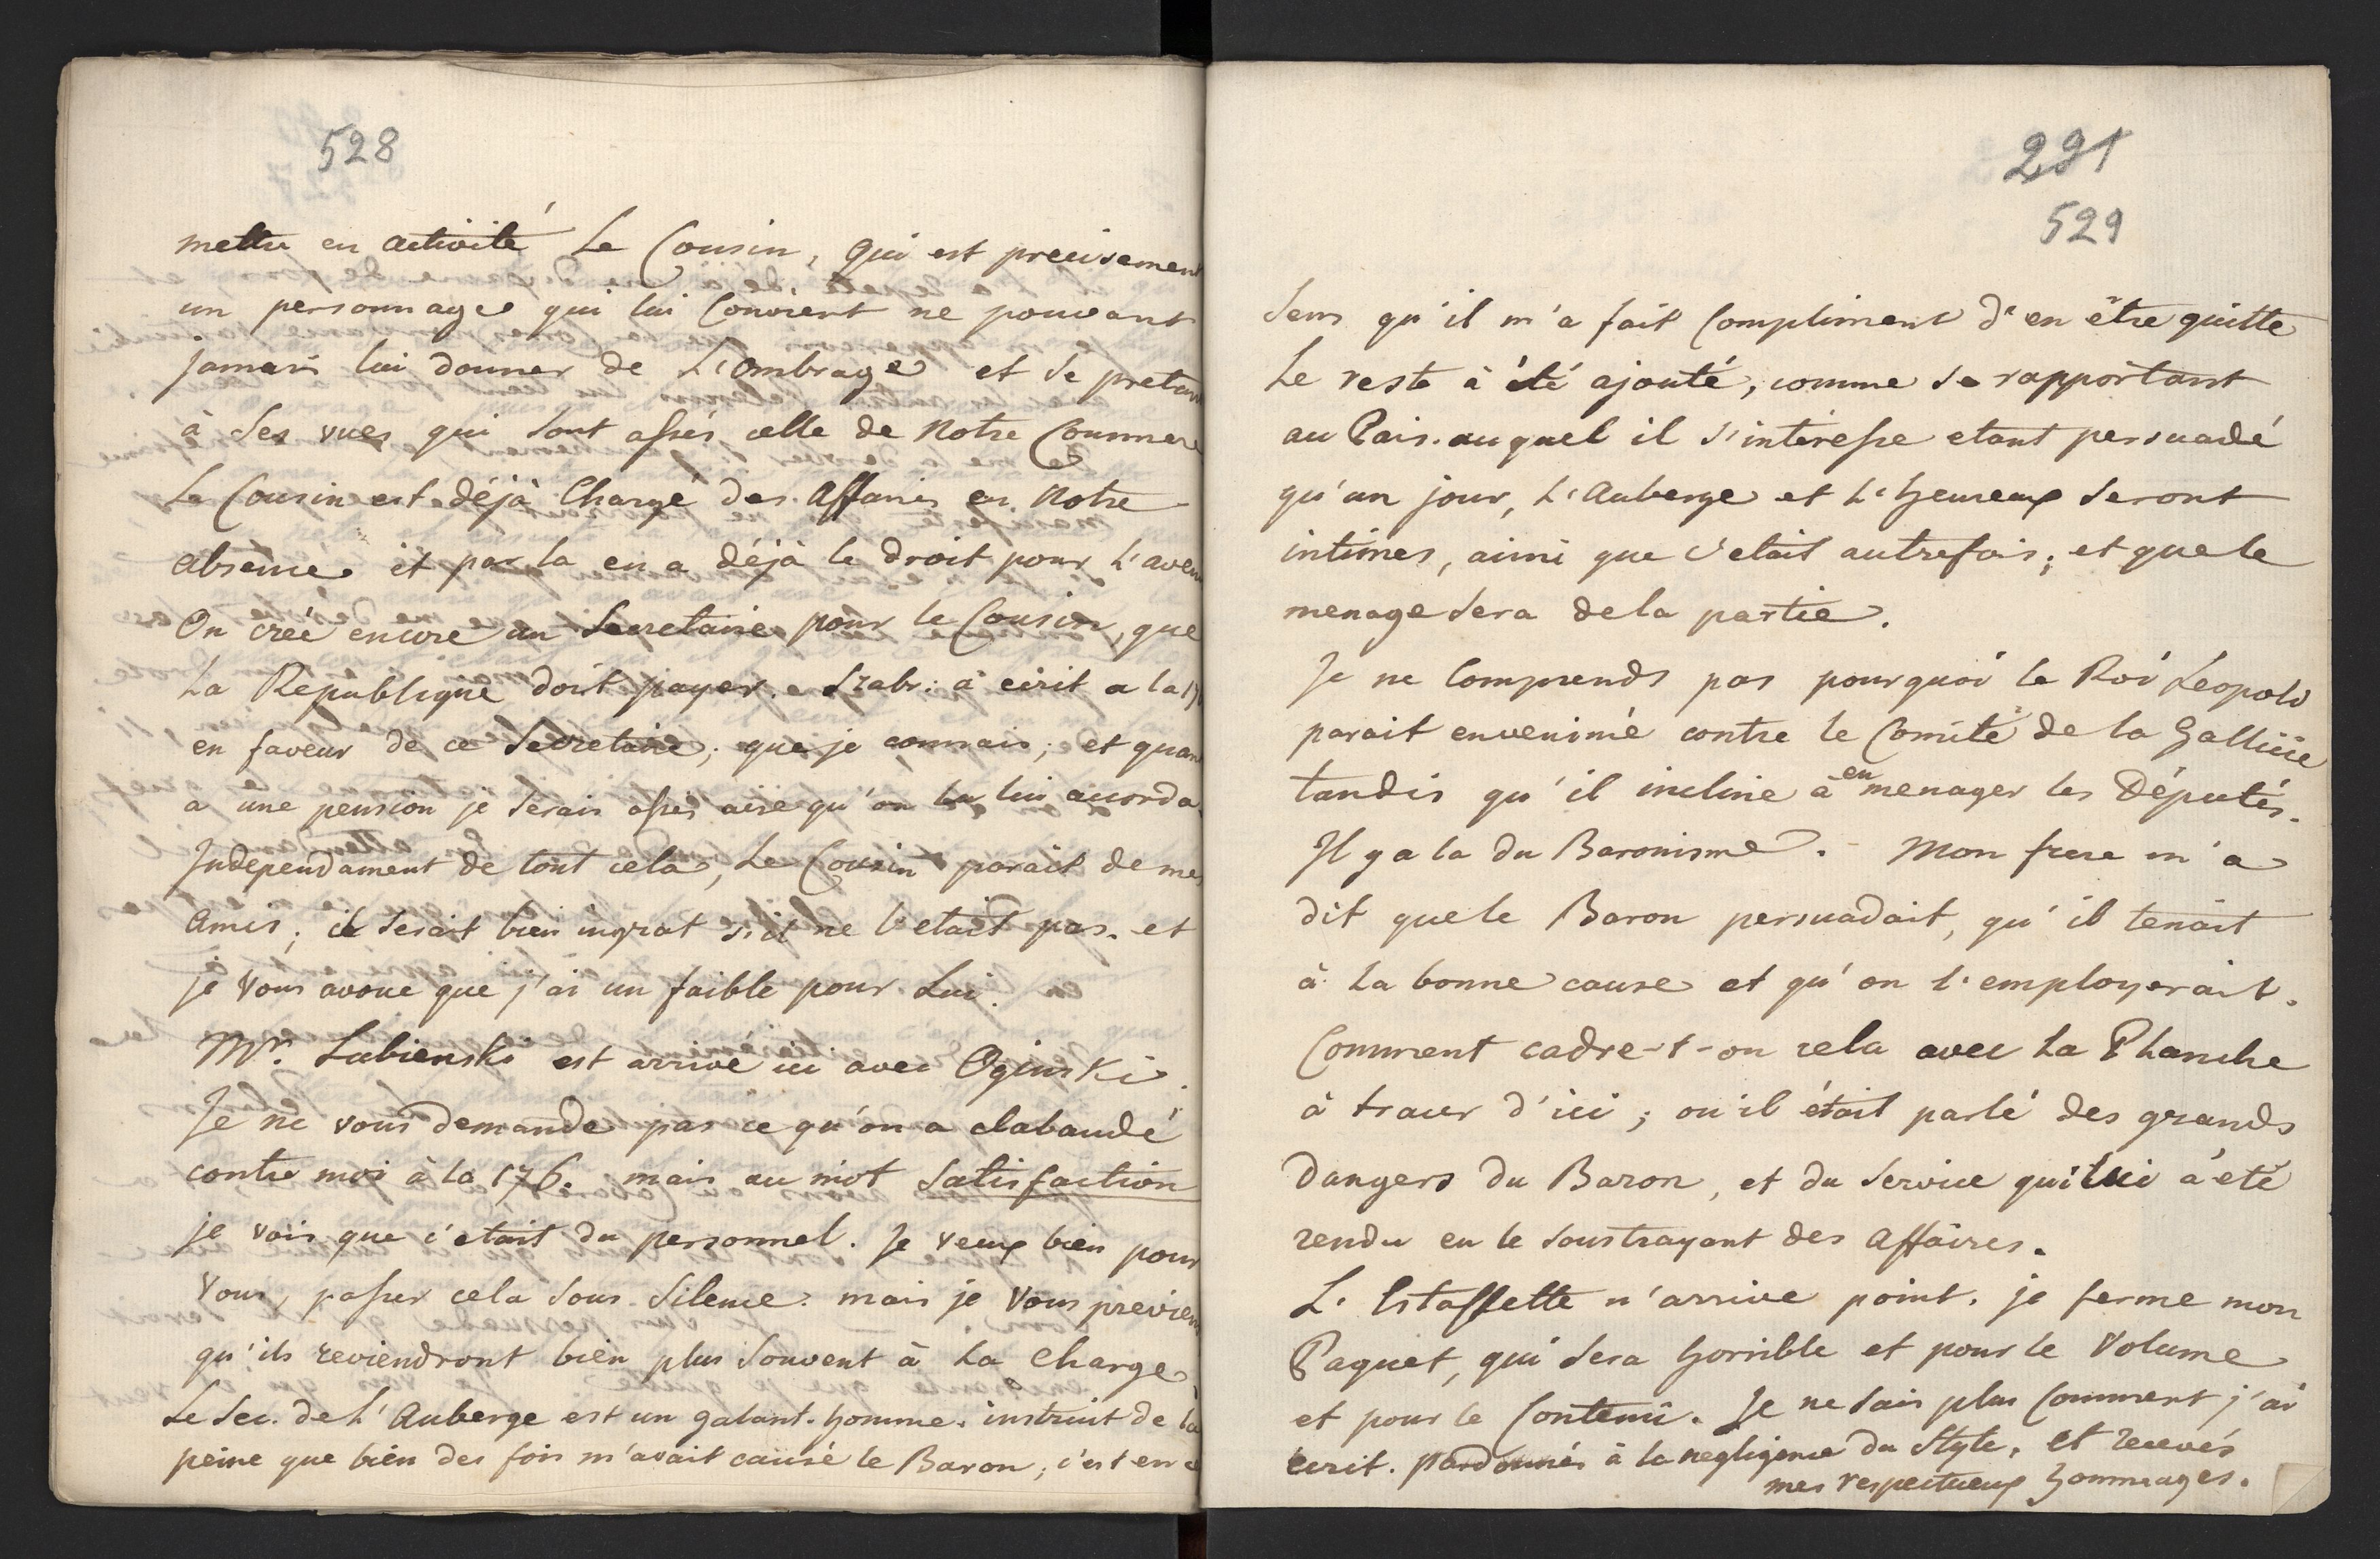 528
mettre en activité Le Cousin, qui est precisement
un personnage qui lui Convient ne pouvant
jamais lui donner de L'Ombrage et se pretan
à Ses vues qui sont assés celle de Notre Commere
Le Cousin est déjà Chargé des Affaires en Notre
absence et par la en a déjà le Droit pour L'aven
On creé encore un Secretaire pour le Cousin, que
La Republique doit payer. Szabr: à ecrit a la 17
en faveur de ce Secretaire; que je connais; et quan
a une pension je serais assés aise qu'on la lui accorda
Independament de tout cela, Le Cousin parait de mes
Amis; il serait bien ingrat s'il ne l'etait pas. et
je Vous avoue que j'ai un faible pour Lui.
Mr. Lubienski est arrivé ici avec Oginski.
Je ne vous demande pas ce qu'on a clabaudé
contre moi à la 176. mais au mot Satisfaction
je vois que c'etait du personnel. Je veux bien pour
Vous, passer cela sous Silence. mais je Vous previen
qu'ils reviendront bien plus souvent à La Charge
Le Sec. de L'Auberge est un galant-homme. instruit de la
peine que bien des fois m'avait causé le Baron; c'est en c
291
529
Sens qu'il m'a fait Compliment d'en être quitte
Le reste à été ajouté, comme se rapportant
au Païs. auquel il s'interesse etant persuadé
qu'un jour, L'Auberge et L'heureux Seront
intimes, ainsi que c'etait autrefois; et que le
menage Sera de la partie.
Je ne Comprends pas pourquoi le Roi Léopold
parait envenimé contre le Comité de la Gallicie
tandis qu'il incline à en menager les Députés.
Il y a la du Baronisme. Mon frere m'a
dit que le Baron persuadait, qu'il tenait
à La bonne cause et qu'on l'employerait.
Comment cadre-t-on cela avec La Planche
à tracer d'ici; ou il était parlé des grands
Dangers du Baron, et du Service qui lui à eté
rendu en le soustrayant des Affaires.
L'Estaffette n'arrive point. je ferme mon
Paquet, qui Sera horrible et pour le Volume
et pour le Contenu. Je ne sais plus Comment j'ai
écrit. pardonnés à la negligence du Style. et recevés
mes respectueux hommages.